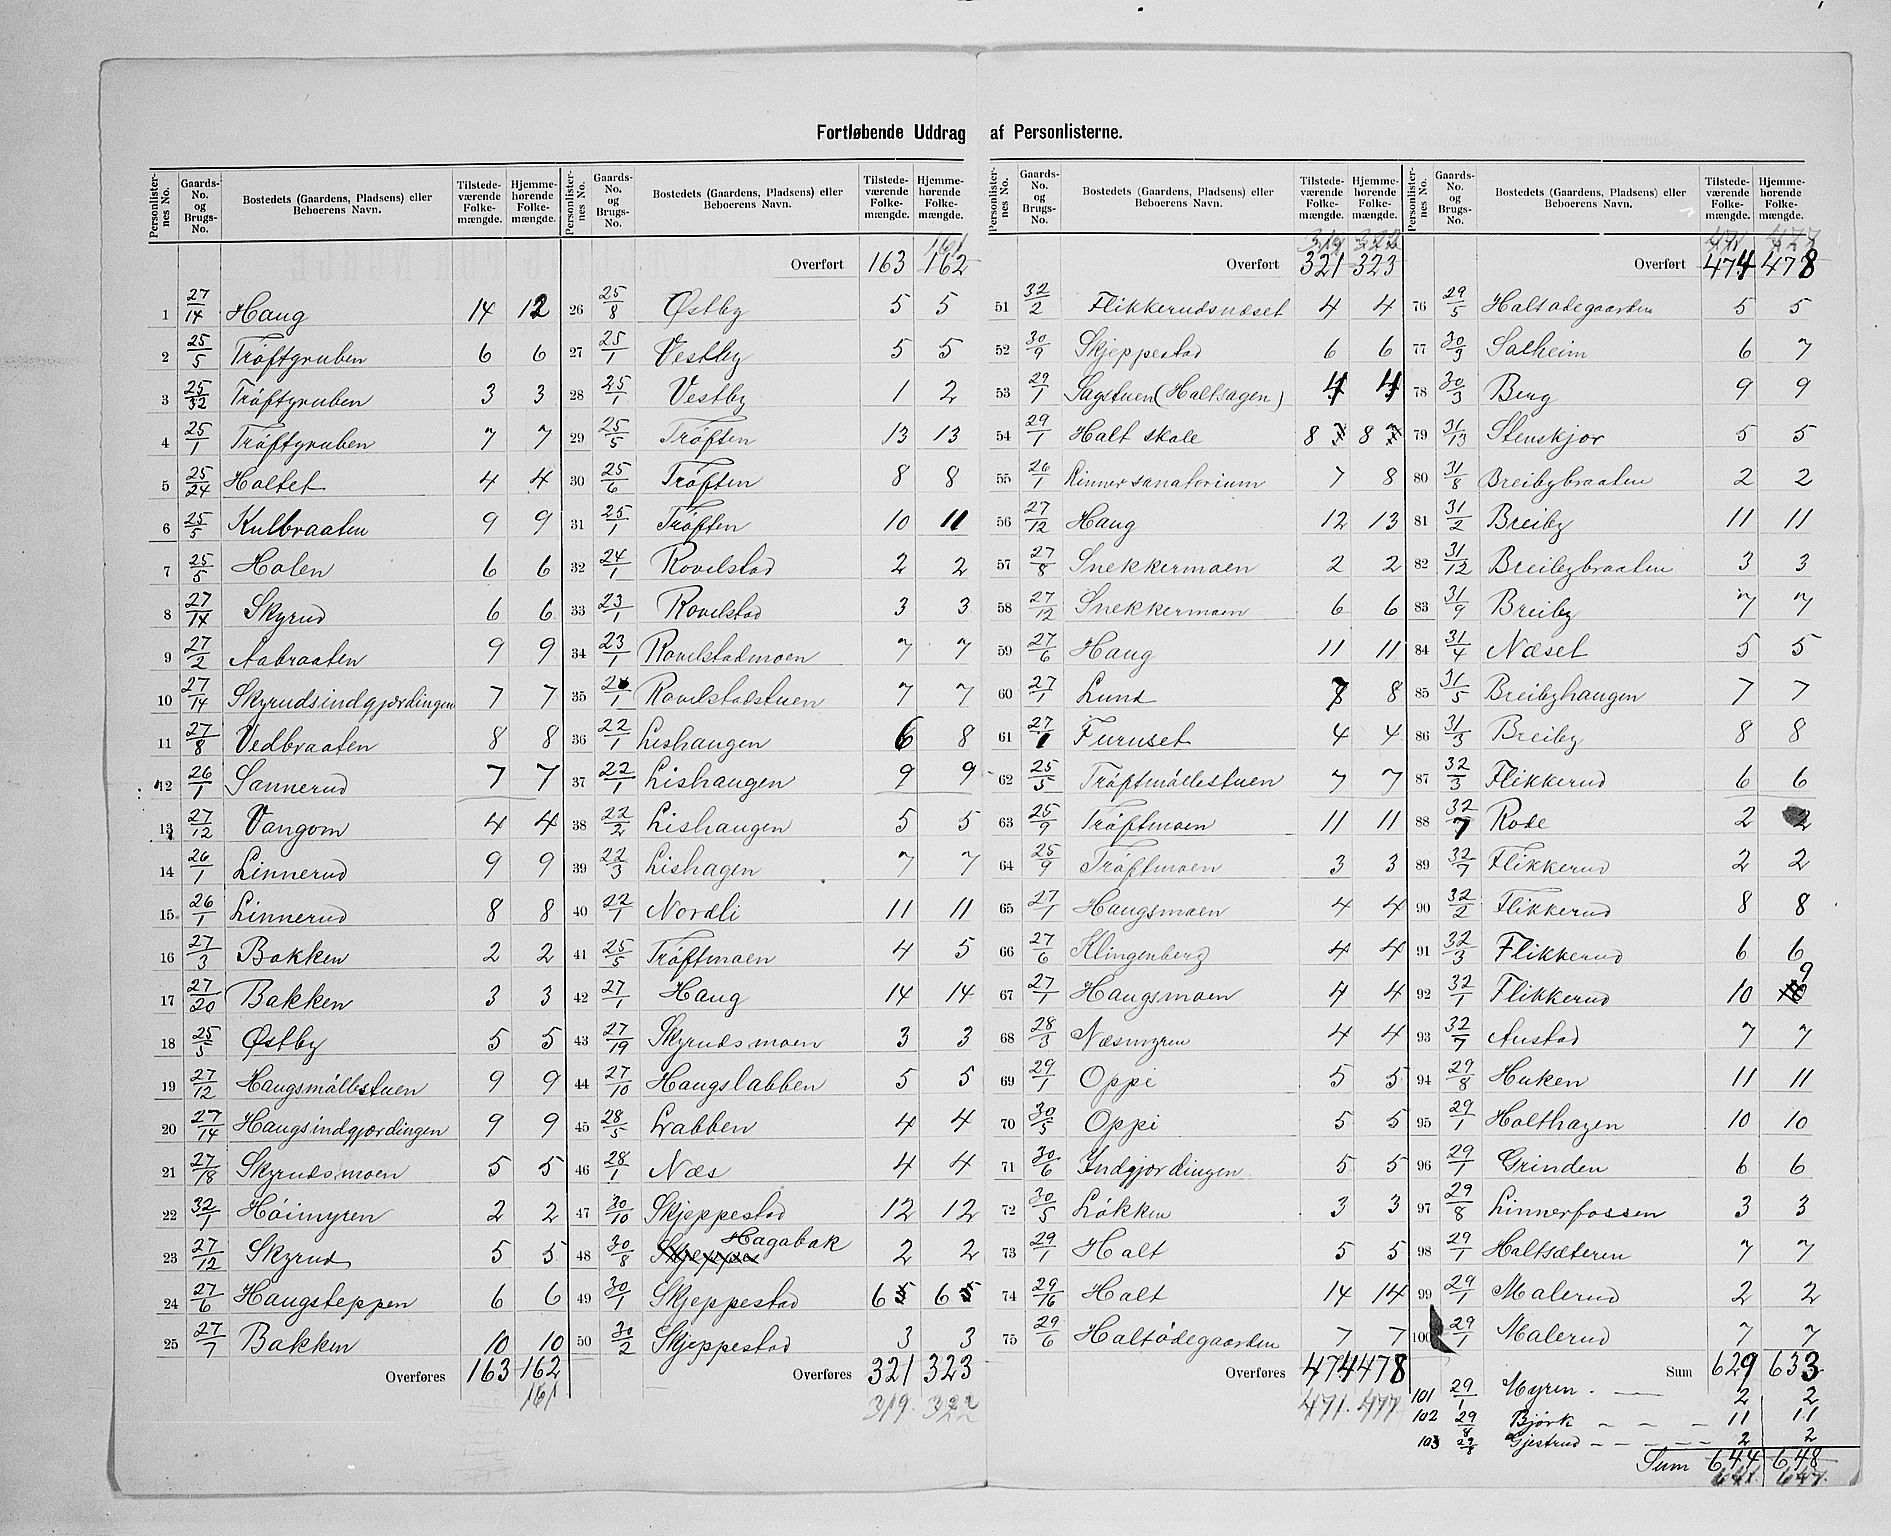 Fortløbende Uddrag af Personlisterne.
Personlister-nes No. Gaards-No. og Brugs-No. Bostedets (Gaardens, Pladsens) eller Beboerens Navn. Tilstede-værende Folke-mængde. Hjemme-hørende Folke-mængde.
1 27/14 Haug 14 12
2 25/5 Trøftgruben 6 6
3 25/32 Trøftgruben 3 3
4 25/1 Trøftgruben 7 7
5 25/24 Holtet 4 4
6 25/5 Kulbraaten 9 9
7 25/5 Holen 6 6
8 27/14 Skyrud 6 6
9 27/2 Aabraaten 9 9
10 27/14 Skyrudsindgjærdingen 7 7
11 27/8 Vedbraaten 8 8
12 26/1 Sannerud 7 7
13 27/12 Vangom 4 4
14 26/1 Linnerud 9 9
15 26/1 Linnerud 8 8
16 27/3 Bakken 2 2
17 27/20 Bakken 3 3
18 25/5 Østby 5 5
19 27/12 Haugsmøllestuen 9 9
20 27/14 Haugsindgjærdingen 9 9
21 27/18 Skyrudsmoen 5 5
22 32/1 Høimyren 2 2
23 27/12 Skyrud 5 5
24 27/6 Haugsteppen 6 6
25 27/7 Bakken 10 10
Overføres 163 162
161
Personlister-nes No. Gaards-No. og Brugs-No. Bostedets (Gaardens, Pladsens) eller Beboerens Navn. Tilstede-værende Folke-mængde. Hjemme-hørende Folke-mængde.
161
Overført 163 162
26 25/8 Østby 5 5
27 25/1 Vestby 5 5
28 25/1 Vestby 1 2
29 25/5 Trøften 13 13
30 25/6 Trøften 8 8
31 25/1 Trøften 10 11
32 24/1 Rovelstad 2 2
33 23/1 Rovelstad 3 3
34 23/1 Rovelstadmoen 7 7
35 /1 Rovelstadstuen 7 7
36 22/1 Lishaugen 6 8
37 22/1 Lishaugen 9 9
38 22/2 Lishaugen 5 5
39 22/3 Lishagen 7 7
40 22/1 Nordli 11 11
41 25/5 Trøftmoen 4 5
42 27/1 Haug 14 14
43 27/19 Skyrudsmoen 3 3
44 27/10 Haugslabben 5 5
45 28/5 Labben 4 4
46 28/1 Næs 4 4
47 30/10 Skjeppestad 12 12
48 30/8 Hagabak 2 2
49 30/1 Skjeppestad 6 5 6 5
50 30/2 Skjeppestad 3 3
Overføres 321 323
319. 322
22
Personlister-nes No. Gaards-No. og Brugs-No. Bostedets (Gaardens, Pladsens) eller Beboerens Navn. Tilstede-værende Folke-mængde. Hjemme-hørende Folke-mængde.
319 322
Overført 321 323
51 32/2 Flikkerudsnæset 4 4
52 30/9 Skjeppestad 6 6
53 29/1 Sagstuen (Holtsagen) 4 4
54 29/1 Holt skole 8 7 8 7
55 26/1 Rinner sanatorium 7 8
56 27/12 Haug 12 13
57 27/8 Snekkermoen 2 2
58 27/12 Snekkermoen 6 6
59 27/6 Haug 11 11
60 27/1 Lund 7 8
61 27/1 Furuset 4 4
62 25/5 Trøftmøllestuen 7 7
63 25/9 Trøftmoen 11 11
64 25/9 Trøftmoen 3 3
65 27/1 Haugsmoen 4 4
66 27/6 Klingenberg 4 4
67 27/1 Haugsmoen 4 4
68 28/3 Næsmyren 4 4
69 29/1 Oppi 5 5
70 30/5 Oppi 5 5
71 30/6 Indgjordingen 5 5
72 30/5 Løkken 3 3
73 29/1 Holt 5 5
74 29/16 Holt 14 14
75 29/6 Holtødegaarden 7 7
Overføres 474 478
471. 477
Personlister-nes No. Gaards-No. og Brugs-No. Bostedets (Gaardens, Pladsens) eller Beboerens Navn. Tilstede-værende Folke-mængde. Hjemme-hørende Folke-mængde.
471 477
Overført 474 478
76 29/5 Holtødegaarden 5 5
77 30/9 Solheim 6 7
78 30/3 Berg 9 9
79 31/13 Stenskjor 5 5
80 31/8 Breibybraaten 2 2
81 31/2 Breiby 11 11
82 31/12 Breibybraaten 3 3
83 31/9 Breiby 7 7
84 31/4 Næset 5 5
85 31/5 Breibyhaugen 7 7
86 31/3 Breiby 8 8
87 32/3 Flikkerud 6 6
88 32/7 Rode 2 2
89 32/7 Flikkerud 2 2
90 32/2 Flikkerud 8 8
91 32/3 Flikkerud 6 6
92 32/1 Flikkerud 10 9
93 32/7 Austad 7 7
94 29/8 Huken 11 11
95 29/1 Holthagen 10 10
96 29/1 Grinden 6 6
97 29/8 Linnerfossen 3 3
98 29/1 Holtsæteren 7 7
99 29/1 Malerud 2 2
100 29/1 Malerud 7 7
Sum 629 633
101 29/1 Myren 2 2
102 29/8 Bjørk 11 11
103 29/8 Gjestrud 2 2
Sum 644 648
641. 647.